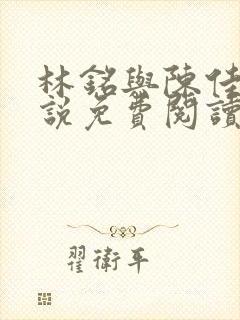 林銘與陳佳
説免費閱讀
翟衛平